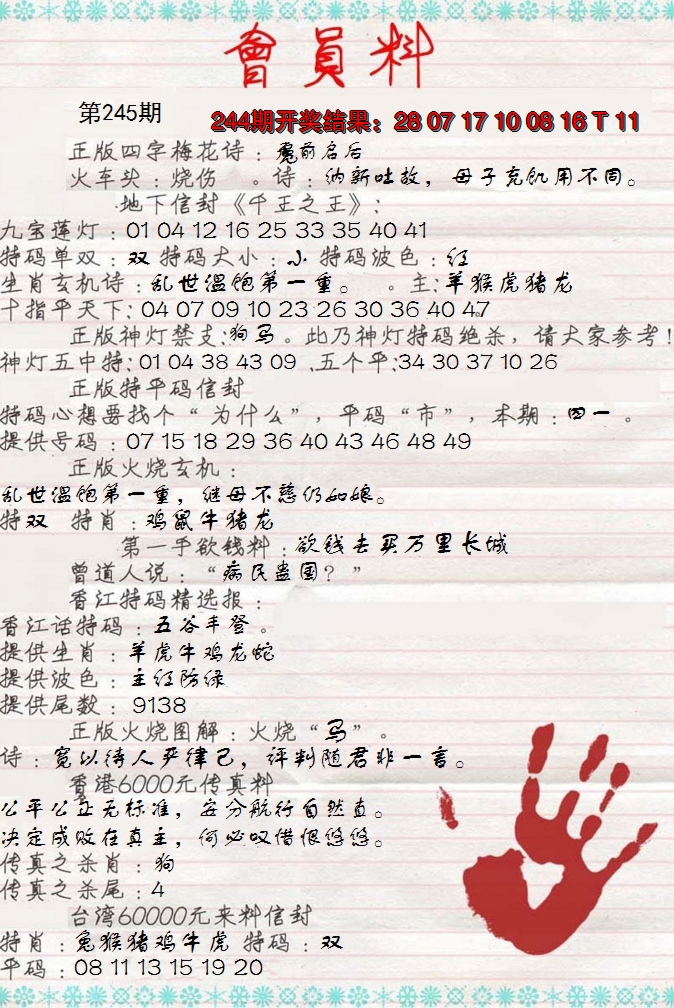 會員料
第245期
244期开奖结果：28 07 17 10 08 16 T 11
正版四字梅花诗：瞻前启后
火车头：烧伤 。诗：纳新吐故，母子充饥用不同。
地下信封《千王之王》：
九宝莲灯：01 04 12 16 25 33 35 40 41
特码单双：双 特码大小：小 特码波色：红
生肖玄机诗：乱世温饱第一重。 。主：羊猴虎猪龙
十指平天下：04 07 09 10 23 26 30 36 40 47
正版神灯禁支：狗马。此乃神灯特码绝杀，请大家参考！
神灯五中特：01 04 38 43 09 .五个平：34 30 37 10 26
正版特平码信封
特码心想要找个“为什么”，平码“市”，本期：四一 。
提供号码：07 15 18 29 36 40 43 46 48 49
正版火烧玄机：
乱世温饱第一重，继母不慈仍如娘。
特双 特肖：鸡鼠牛猪龙
第一手欲钱料：欲钱去买万里长城
曾道人说：“病民蛊国？”
香江特码精选报：
香江话特码：五谷丰登。
提供生肖：羊虎牛鸡龙蛇
提供波色：主红防绿
提供尾数：9138
正版火烧图解：火烧“马”。
诗：宽以待人严律己，评判随君非一言。
香港6000元传真料
公平公正无标准，安分航行自然直。
决定成败在真主，何必叹惜恨悠悠。
传真之杀肖：狗
传真之杀尾：4
台湾60000元来料信封
特肖：兔猴猪鸡牛虎 特码：双
平码：08 11 13 15 19 20